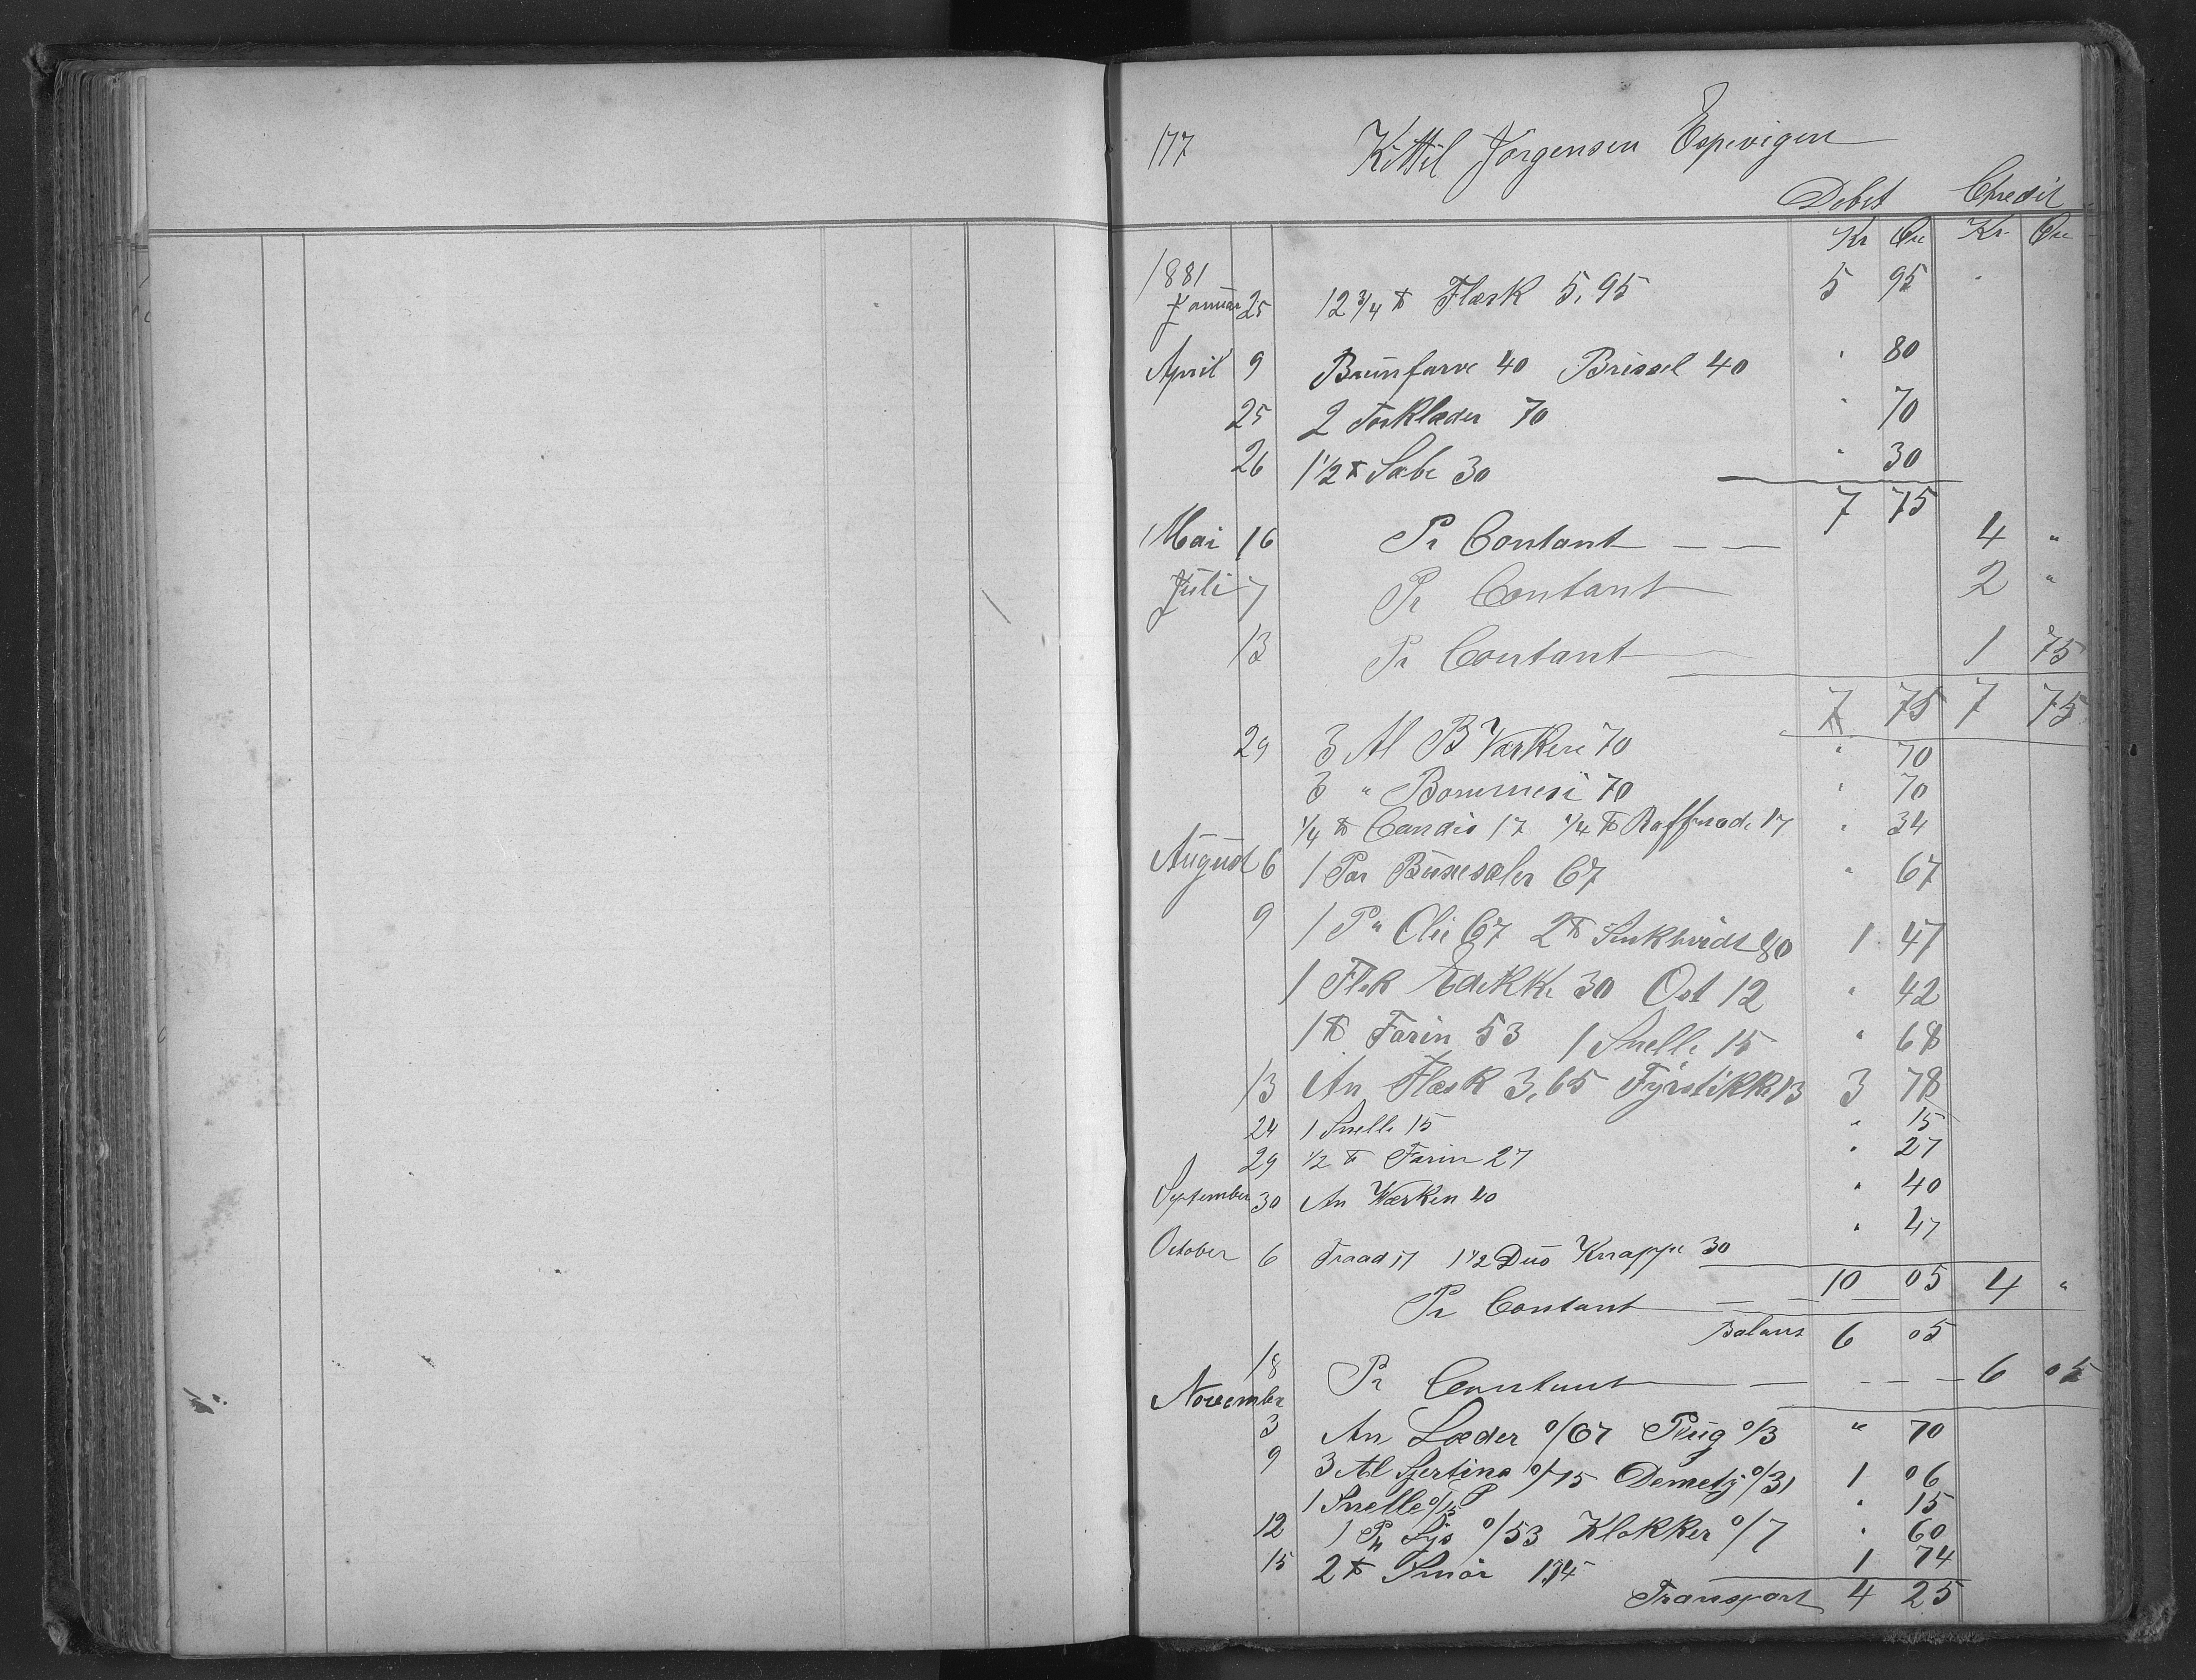 177 Kittil Jørgensen Espevigen
Debet Credit
Kr Øre Kr. Øre
1881
Januar 25 12 3/4 ℔ Flæsk 5,95 5 95
April 9 Brunfarve 40 Brissel 40 " 80
25 2 Torklæder 70 " 70
26 1 1/2 ℔ Sæbe 30 " 30
7 75
Mai 16 Pr Contant 4 "
Juli 7 Pr Contant 2 "
13 Pr Contant 1 75
7 75 7 75
29 3 Al B Værken 70 " 70
3 " Bommesi 70 " 70
1/4 ℔ Candis 17 1/4 ℔ Raffinade 17 " 34
August 6 1 Par Buxesæler 67 " 67
9 1 P" Olie 67 2 ℔ Sinkhvidt 80 1 47
1 Flsk Edikke 30 Ost 12 " 42
1 ℔ Farin 53 1 Snelle 15 " 68
13 An Flæsk 3,65 Fyrstikke 13 3 78
24 1 Snelle 15 " 15
29 1/2 ℔ Farin 27 " 27
September 30 An Værken 40 " 40
October 6 Traad 17 1 1/2 Dus Knappe 30 " 47
10 05 4 "
Pr Contant
Balans 6 05
18 Pr Contant 6 05
November
3 An Læder 0/67 Plüg 0/3 " 70
9 3 Al Sjertins 0/75 Demetj 0/31 1 06
1 Snelle 0/15 " 15
12 1 Sjs 0/53 Klokker 0/7 " 60
15 2 ℔ Smør 1,74 1 74
Transport 4 25